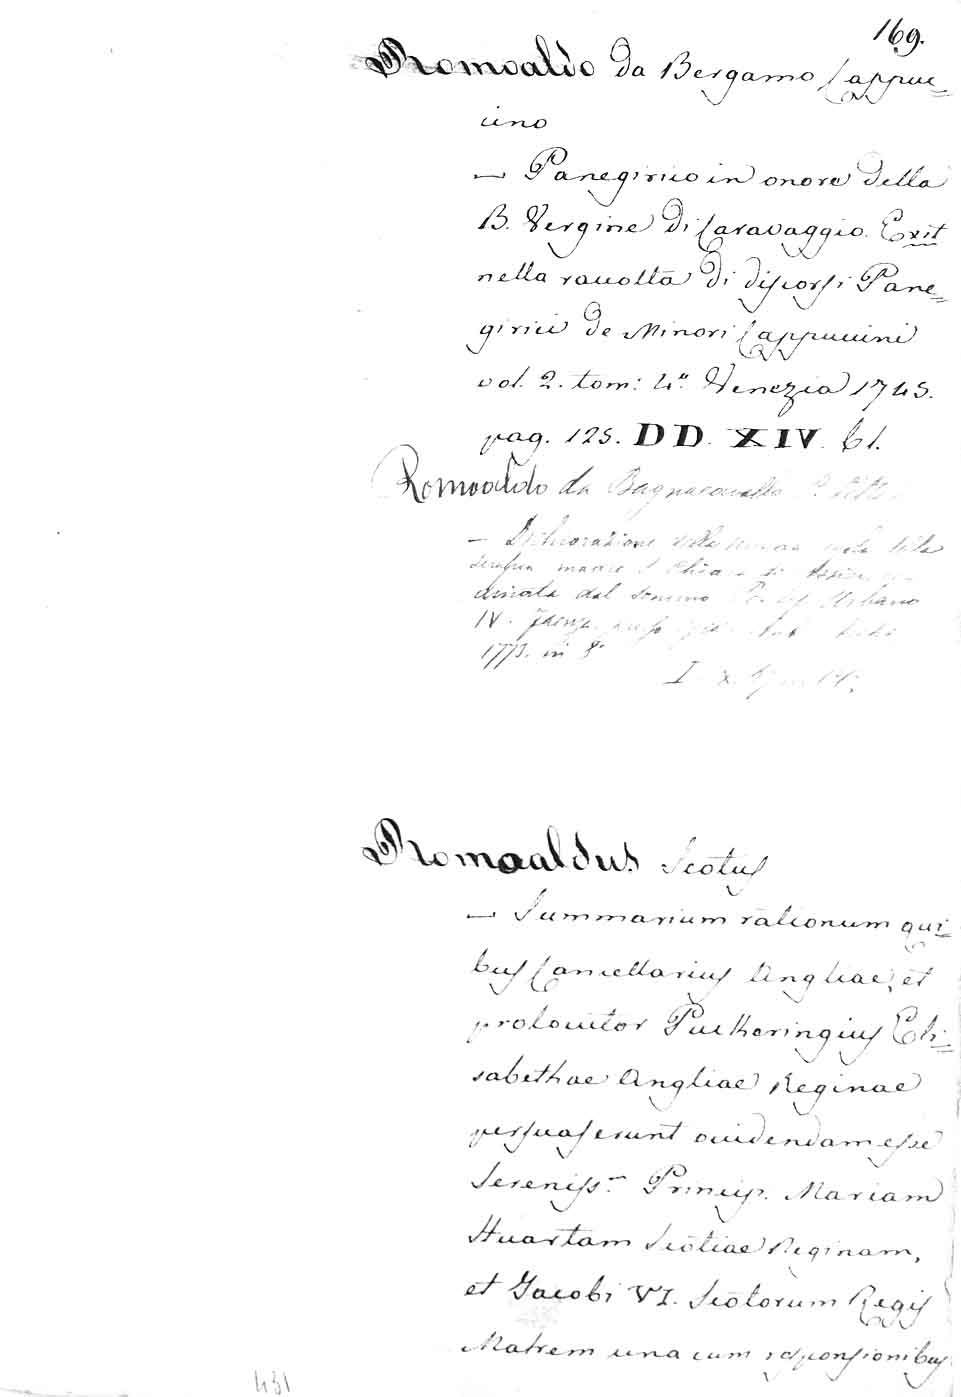 169.
Romoaldo da Bergamo Cappuc=
cino
— Panegirico in onore della
B. Vergine di Caravaggio. Exit
nella raccolta di discorsi Pane=
girici de Minori Cappuccini
vol. 2. tom: 4.º Venezia 1745.
pag. 125. DD. XIV. 61.
Romoaldo da Bagnacavallo
— Dichiarazione della
madre S. Chiara di Assisi
dal sommo Urbano
IV.
1773. in 8º
Romoaldus Scotus
— Summarium rationum qui=
bus Cancellarius Angliae, et
prolocutor Puckeringius Eli=
sabethae Angliae Reginae
persuaserunt occidendam esse
Sereniss. Princip. Mariam
Stuartam Scotiae Reginam,
et Jacobi VI. Scotorum Regis
Matrem una cum responsionibus
431